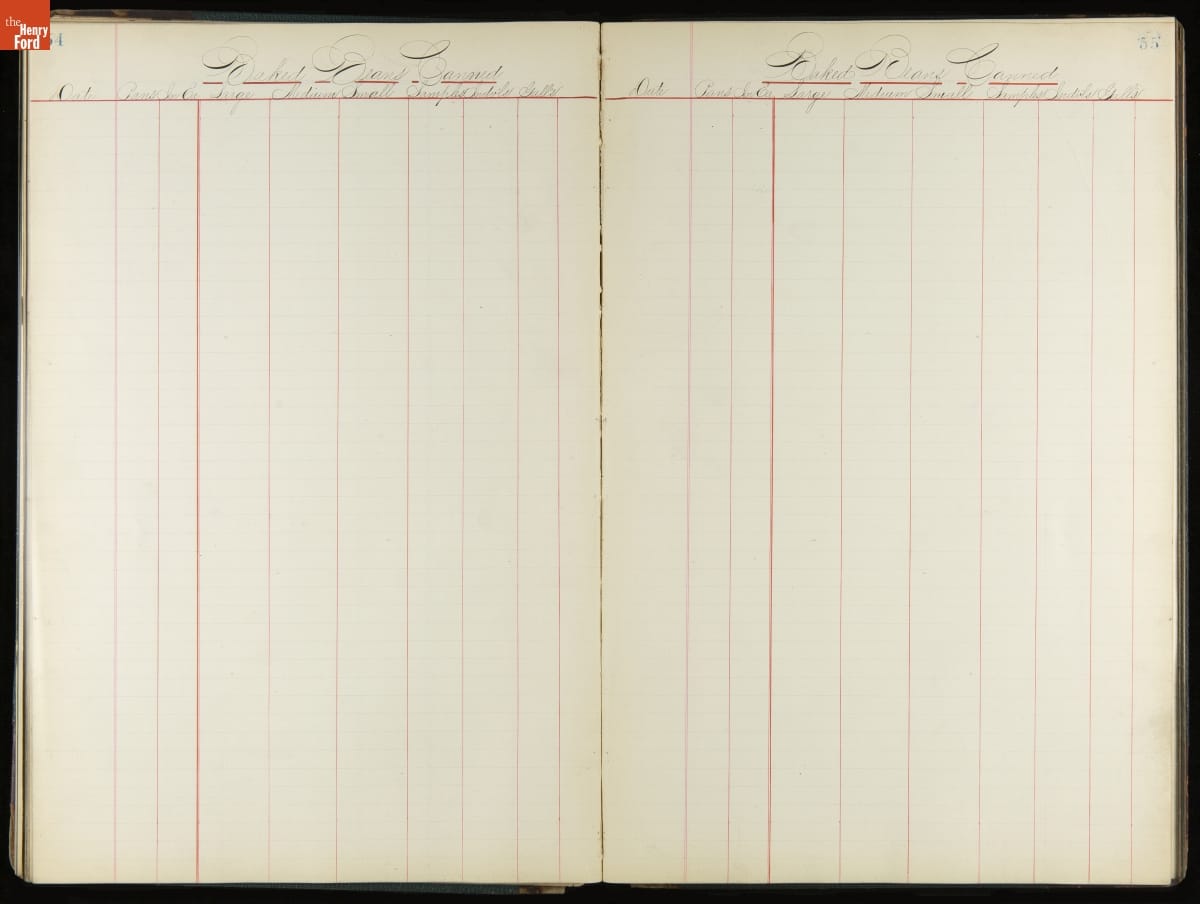 the
Henry
Ford
54
Baked Beans Canned
Date Pans In Ea Large Medium Small Samples Indv'ls Gall's
55
Baked Beans Canned
Date Pans In Ea Large Medium Small Samples Indv'ls Gall's